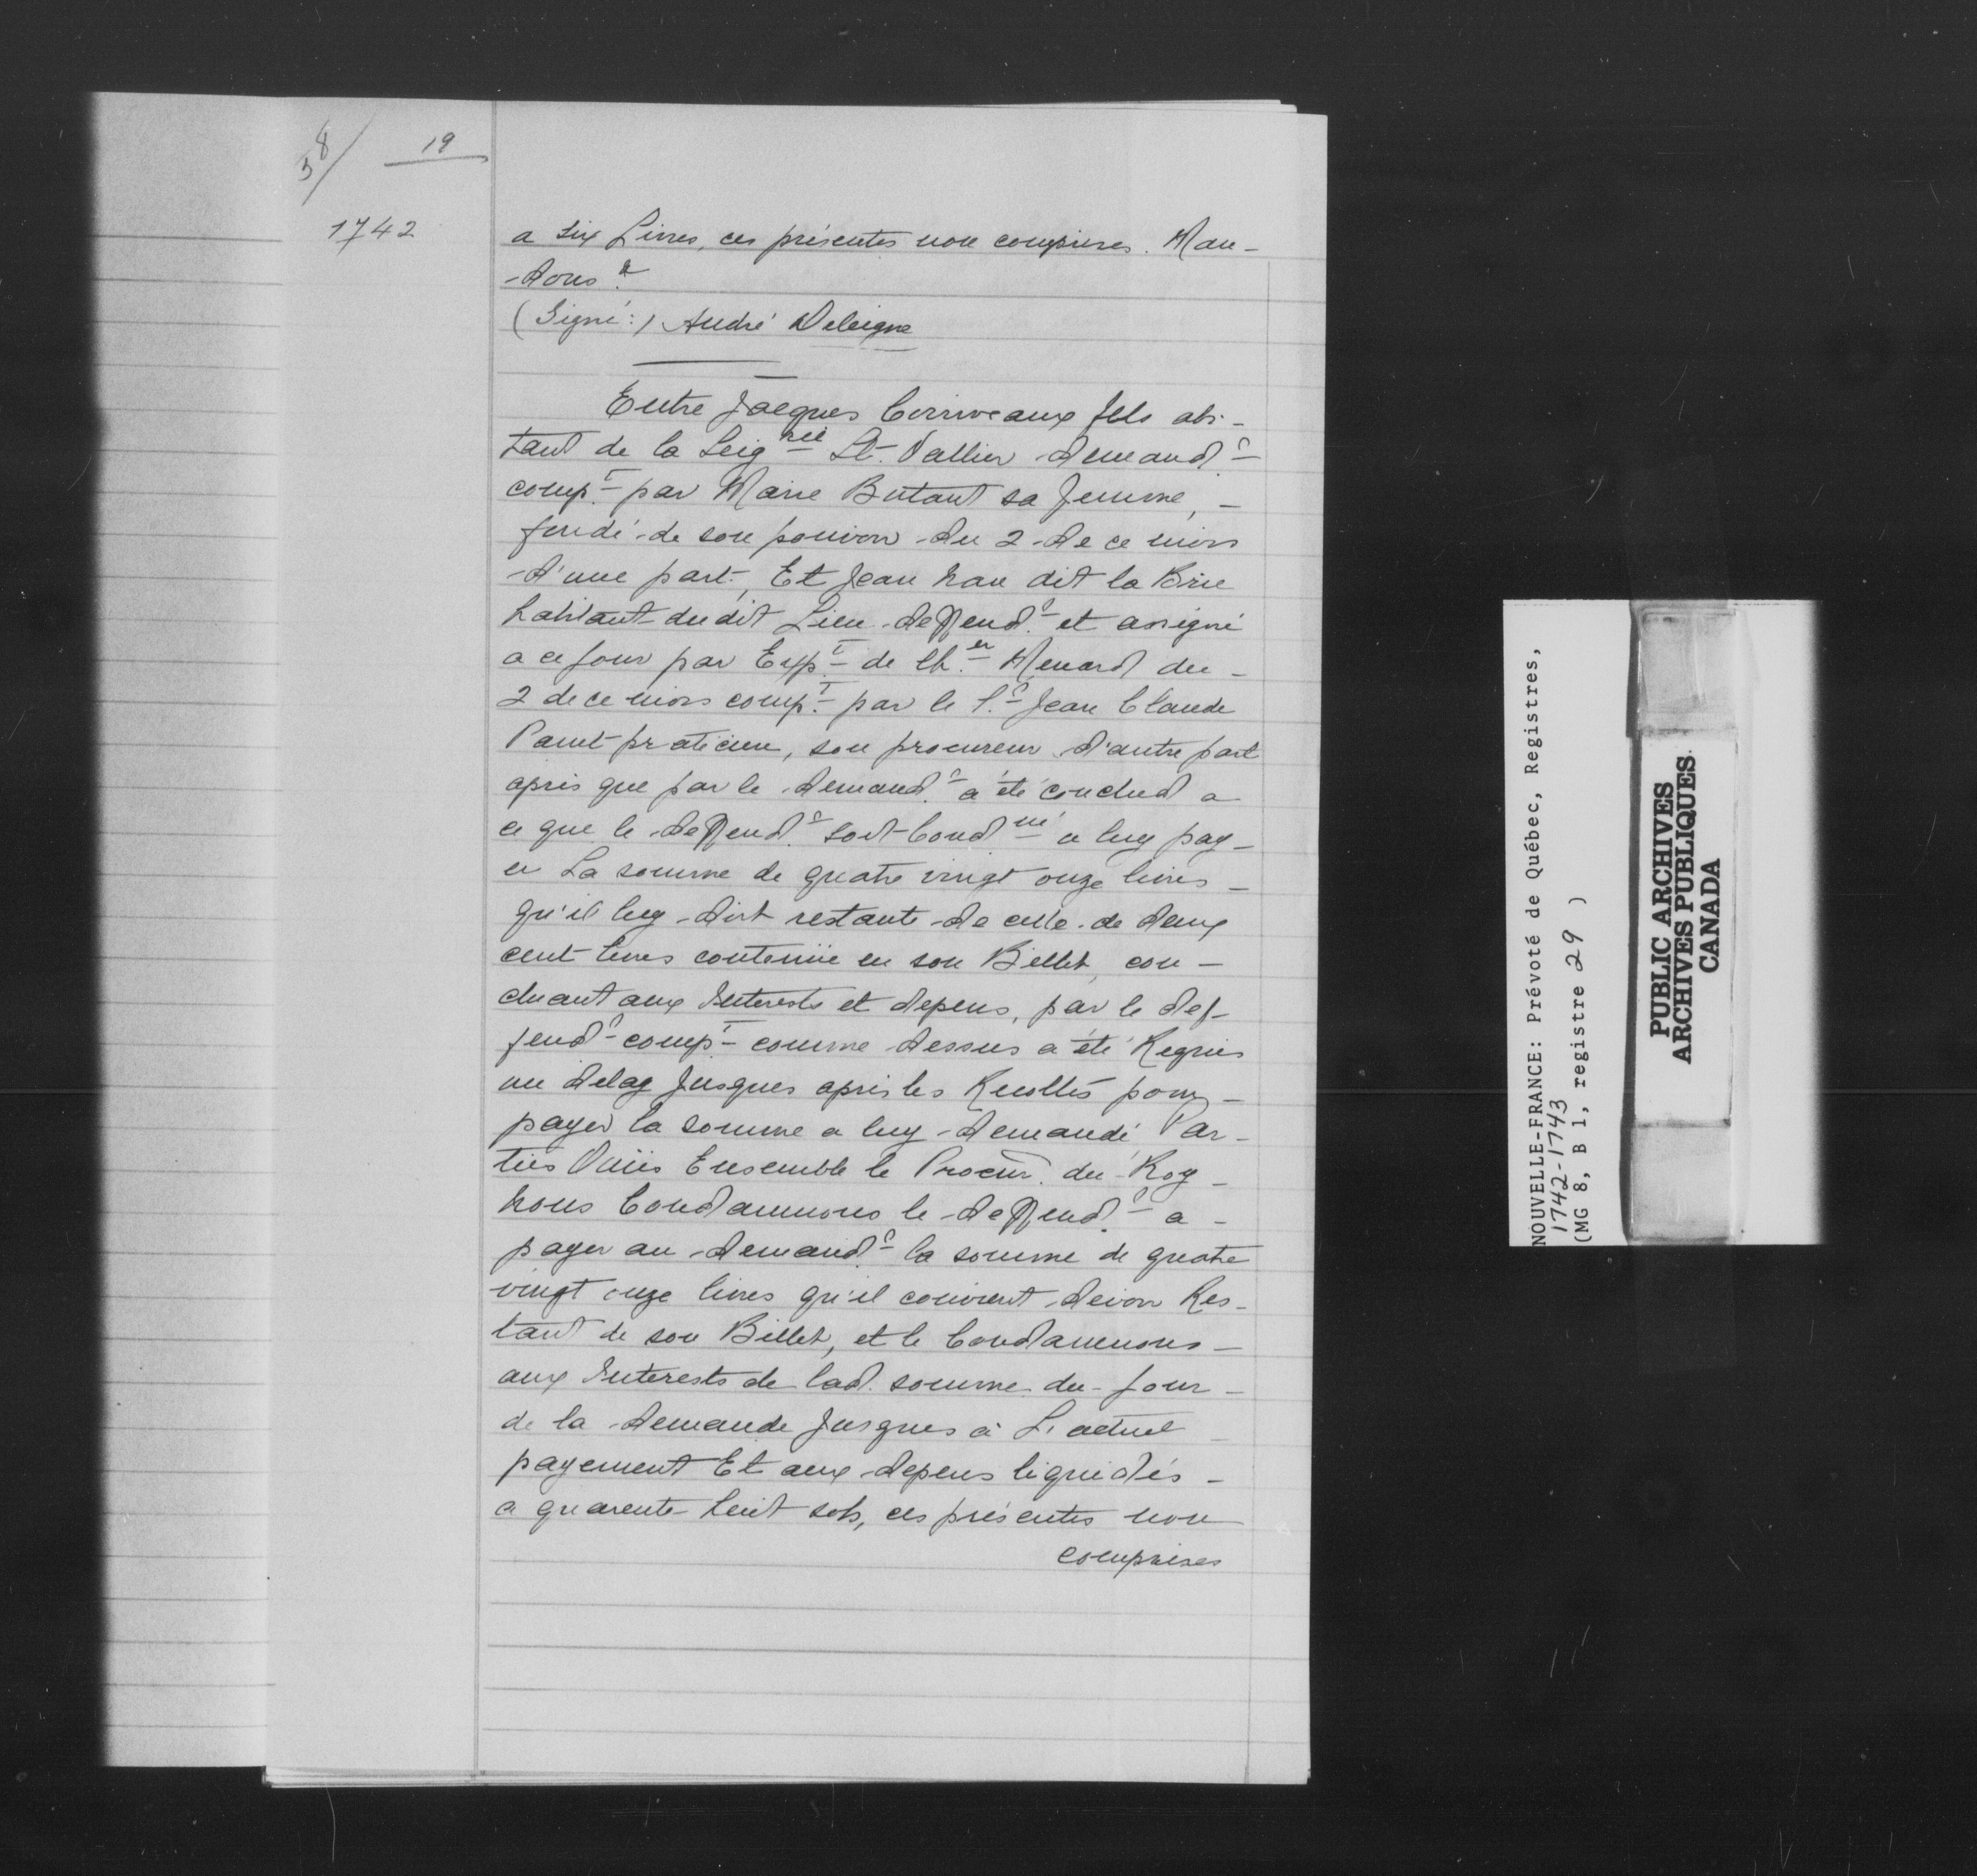 58/ 19
1742
a six Livres, ces présentes non comprises. Man-
-dons &a
(Signé:) André Deleigne
Entre Jacques Corriveaux fils abi-
tant de la Seig.rie St. Vallier demand.r
comp.t par Marie Butant sa femme, -
fondé de son pouvoir du 2 de ce mois
d'une part, Et Jean nau dit la Brie
habitant du dit Lieu deffend.r et assigné
a ce jour par Exp.t de Ch.er Menard du -
2 de ce mois comp.t par le S.r Jean Claude
Panet praticien, son procureur d'autre part
après que par le demand.r a été conclud a
ce que le deffend.r soit Cond.né a luy pay-
er La somme de quatre vingt onze livres -
qu'il luy doit restante de celle de deux
cent livres contenüe en son Billet, con-
cluant aux Interests et depens, par le def-
fend.r comp.t comme dessus a été Requis
un delay Jusques après les Recoltes pour -
payer la somme a luy demandé, Par-
ties Ouïes Ensemble le Procur.r du Roy -
nous Condamnons le deffend.r a -
payer au demand.r la somme de quatre
vingt onze livres qu'il convient devoir Res-
tant de son Billet, et le Condamnons -
aux Interests de lad. somme du jour -
de la demande Jusques à L'actuel -
payement Et aux depens liquidés -
a quarente huit sols, ces présentes non
comprises
NOUVELLE-FRANCE: Prévoté de Québec, Registres,
1742-1743
(MG 8, B 1, registre 29 )
PUBLIC ARCHIVES
ARCHIVES PUBLIQUES
CANADA